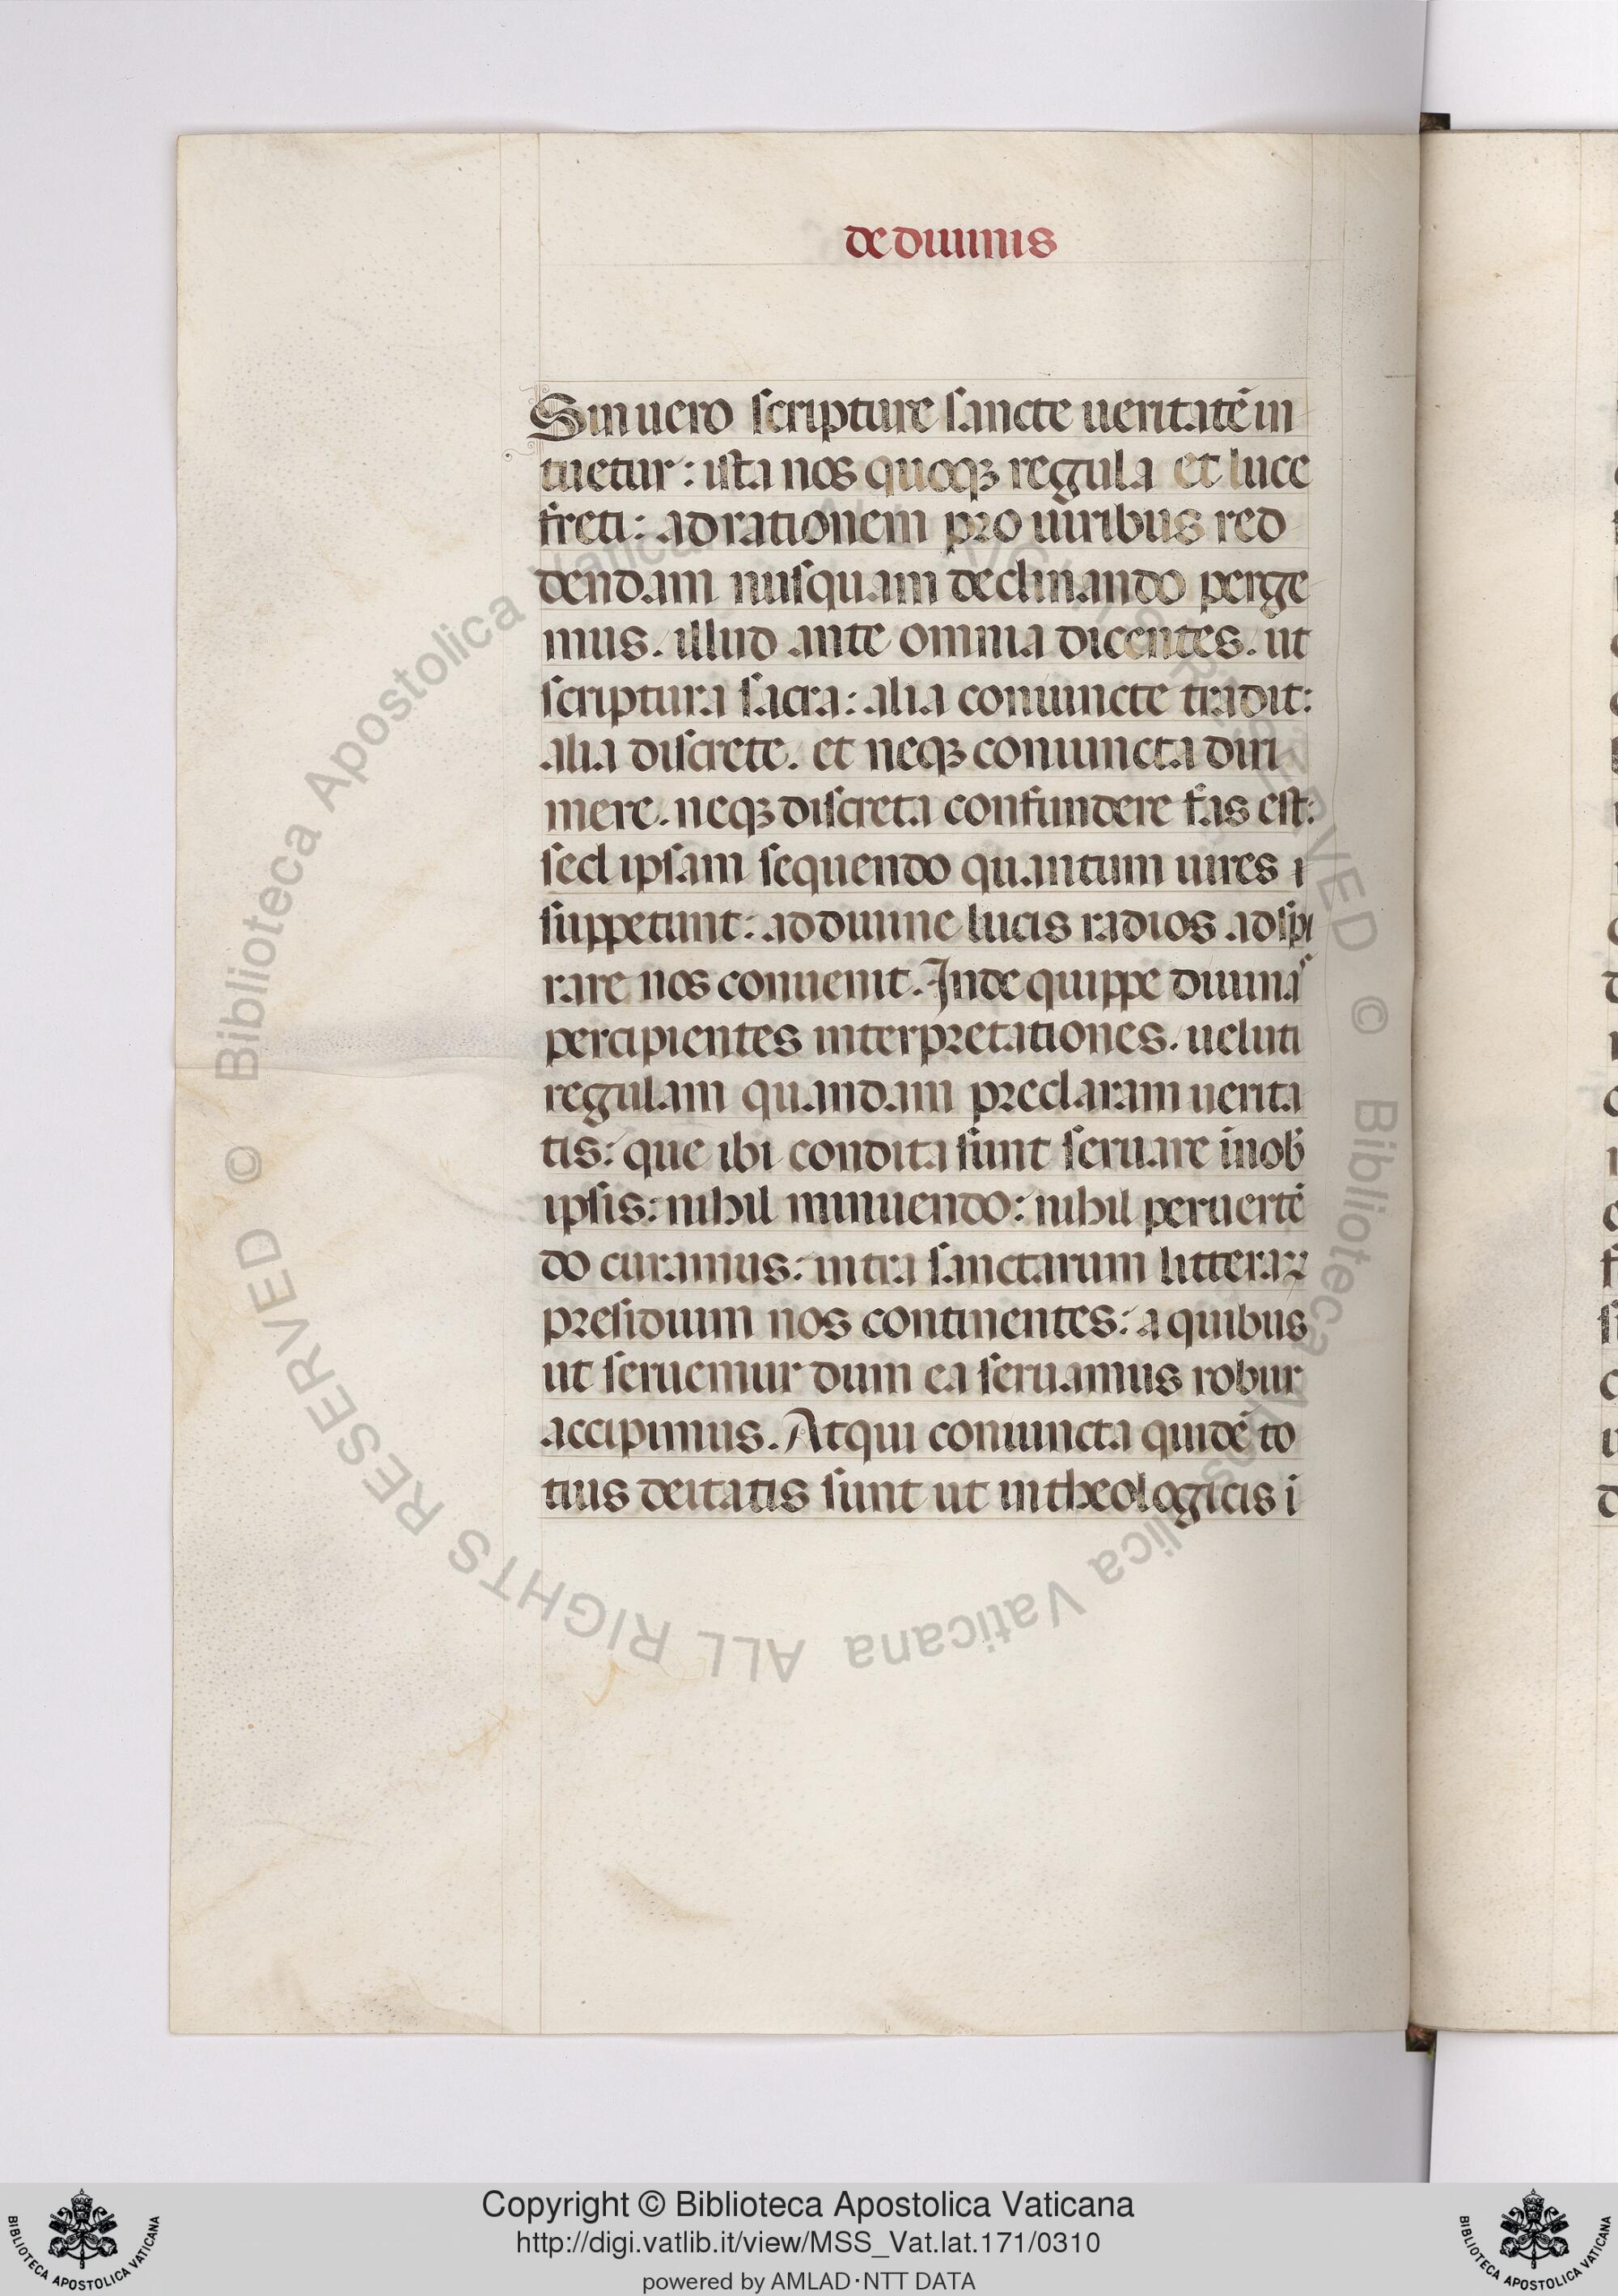 de diuinis
Sin uero scripture sancte ueritatē in
tuetur: ista nos quoqꝫ regula et luce
freti: ad rationem pro uiribus red
dendam nusquam declinando perge
mus. illud ante omnia dicentes. ut
scriptura sacra: alia coniuncte tradit:
alia discrete. et neqꝫ coniuncta diri
mere. neqꝫ discreta confundere fas est:
sed ipsam sequendo quantum uires i
suppetunt: ad diuine lucis radios adspi
rare nos conuenit. Inde quippe diuinas
percipientes interpretationes. ueluti
regulam quandam preclaram uerita
tis: que ibi condita sunt seruare inob
ipsis: nihil minuendo: nihil peruertē
do curamus: intra sanctarum litteraꝝ
presidium nos continentes: a quibus
ut seruemur dum ea seruamus robur
accipimus. Atqui coniuncta quidē to
tius deitatis sunt ut in theologicis i
© Biblioteca Apostolica Vaticana ALL RIGHTS RESERVED © Biblioteca Apostolica Vaticana ALL RIGHTS RESERVED
Copyright © Biblioteca Apostolica Vaticana
http://digi.vatlib.it/view/MSS_Vat.lat.171/0310
powered by AMLAD·NTT DATA
BIBLIOTECA APOSTOLICA VATICANA
BIBLIOTECA APOSTOLICA VATICANA